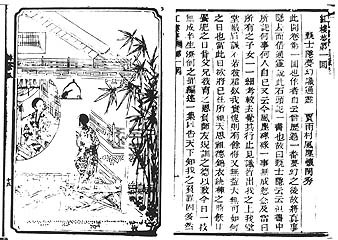 紅樓夢第一回
甄士隱夢幻識通靈　賈雨村風塵懷閨秀
此開卷第一回也作者自云曾歷過一番夢幻之後故將真事
隱去而借通靈說此石頭記一書也故曰甄士隱云云但書中
所記何事何人自己又云今風塵碌碌一事無成忽念及當日
所有之女子一一細考較去覺其行止見識皆出我之上我堂
堂鬚眉誠不若彼裙釵我實愧則有餘悔又無益大無可如何
之日也當此日欲將已往所賴天恩祖德錦衣紈褲之時飫甘
饜肥之日背父兄教育之恩負師友規訓之德以致今日一技
無成半生潦倒之罪編述一集以告天下知我之負罪固多然